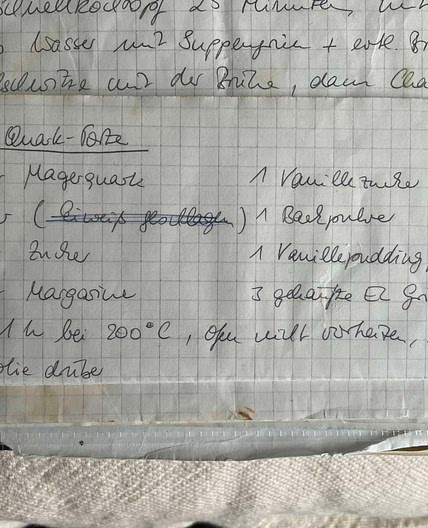 Schnellkochtopf 25 Minuten,
Wasser mit Suppengrün + evtl.
mit der Brühe, dann
Quark-Torte
Magerquark 1 Vanillezucker
(Eiweiß geschlagen) 1 Backpulver
Zucker 1 Vanillepudding,
Margarine 3 gehäufte EL
1 h bei 200°C, Ofen nicht vorheizen,
drüber